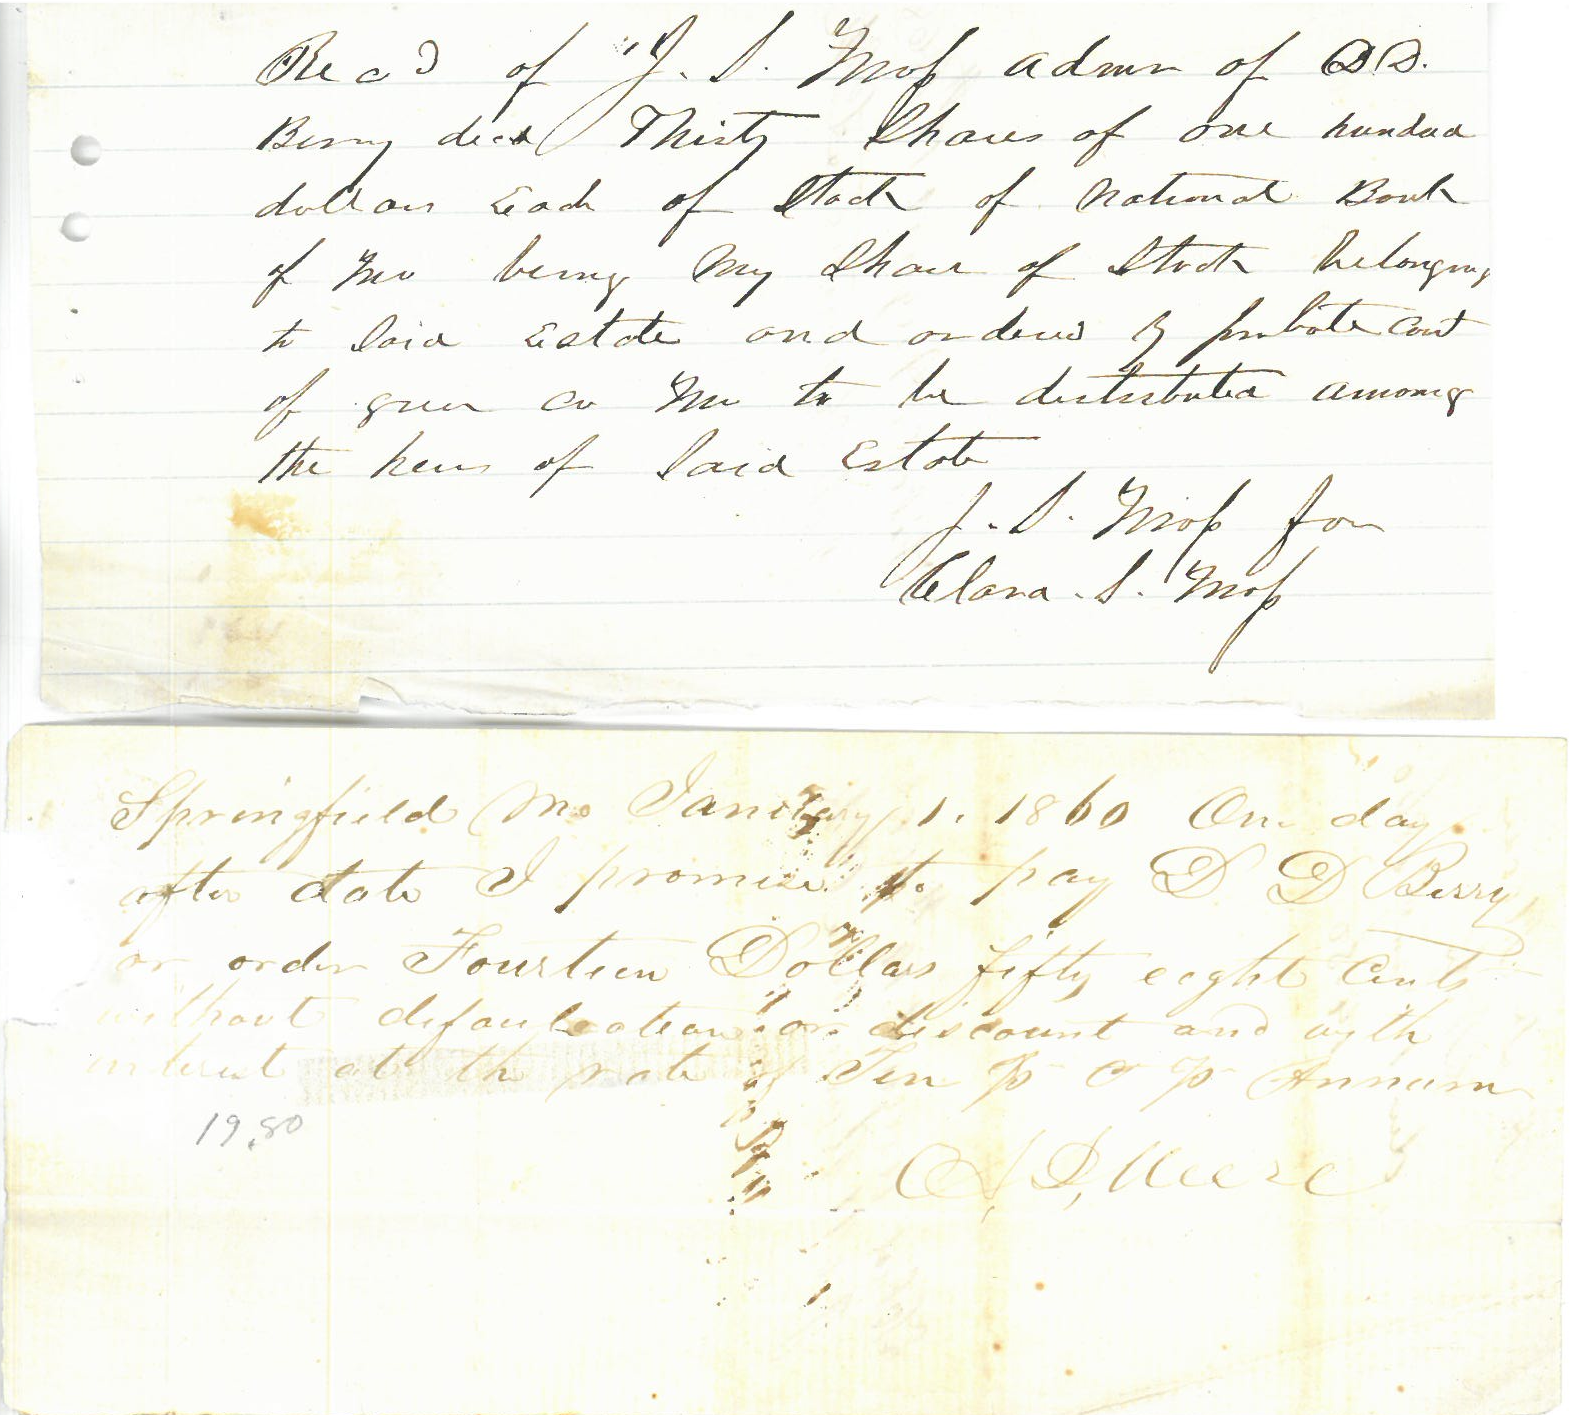 Recd of J. S. Moss admr of D D.
Berry decd Thirty Shares of one hundred
dollars Each of Stock of National Bank
of Mo being My Share of Stock belonging
to Said Estate and ordered by probate Court
of green co Mo to be distributed among
the heirs of Said Estate
J. S. Moss for
Clara. S. Moss
Springfield Mo January 1. 1860 One day
after date I promise to pay D D Berry
or order Fourteen Dollars fifty eight Cents
without defaulcation or discount and with
interest at the rate of Ten Pr C Pr Annum
19.80